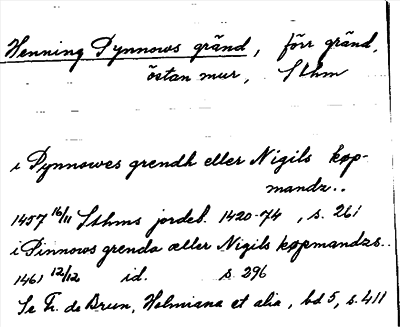 Henning Pynnows gränd, förr gränd,
östan mur, Sthm
i Pynnowes grendh eller Nigils køp-
mandz..
1457 16/11 Sthms jordeb. 1420-74, s. 261
i Pinnows grenda æller Nigils køpmandzs..
1461 12/12 id. s. 296
Se Fr. de Brun, Holmiana et alia, bd 5, s. 411